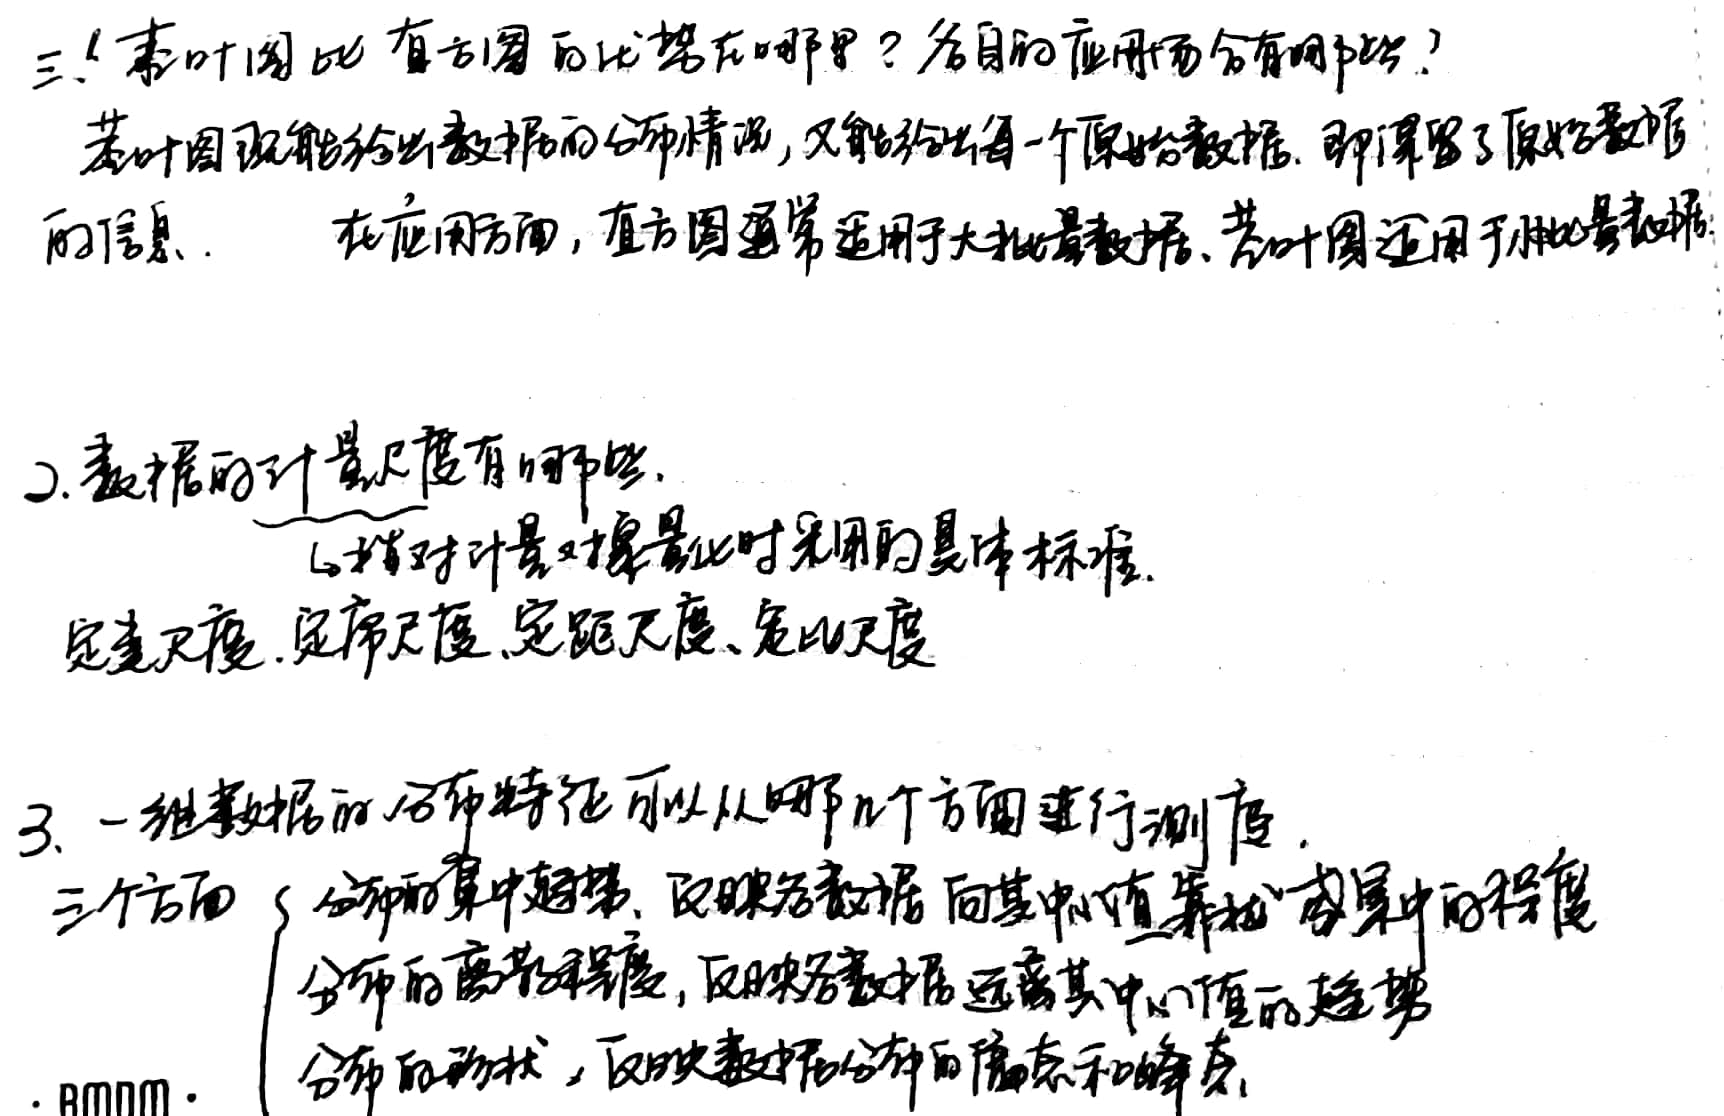 三.1 茎叶图比直方图的优势在哪里？各自的应用场合有哪些？
茎叶图既能给出数据的分布情况，又能给出每一个原始数据．即保留了原始数据
的信息． 在应用方面，直方图通常适用于大批量数据、茎叶图适用于小批量数据．
2.数据的计量尺度有哪些．
↳指对计量对象量化时采用的具体标准．
定类尺度．定序尺度、定距尺度、定比尺度
3、一组数据的分布特征可以从哪几个方面进行测度．
三个方面 { 分布的集中趋势、反映各数据向其中心值靠拢或集中的程度
分布的离散程度，反映各数据远离其中心值的趋势
分布的形状，反映数据分布的偏态和峰态．
· BMDM ·